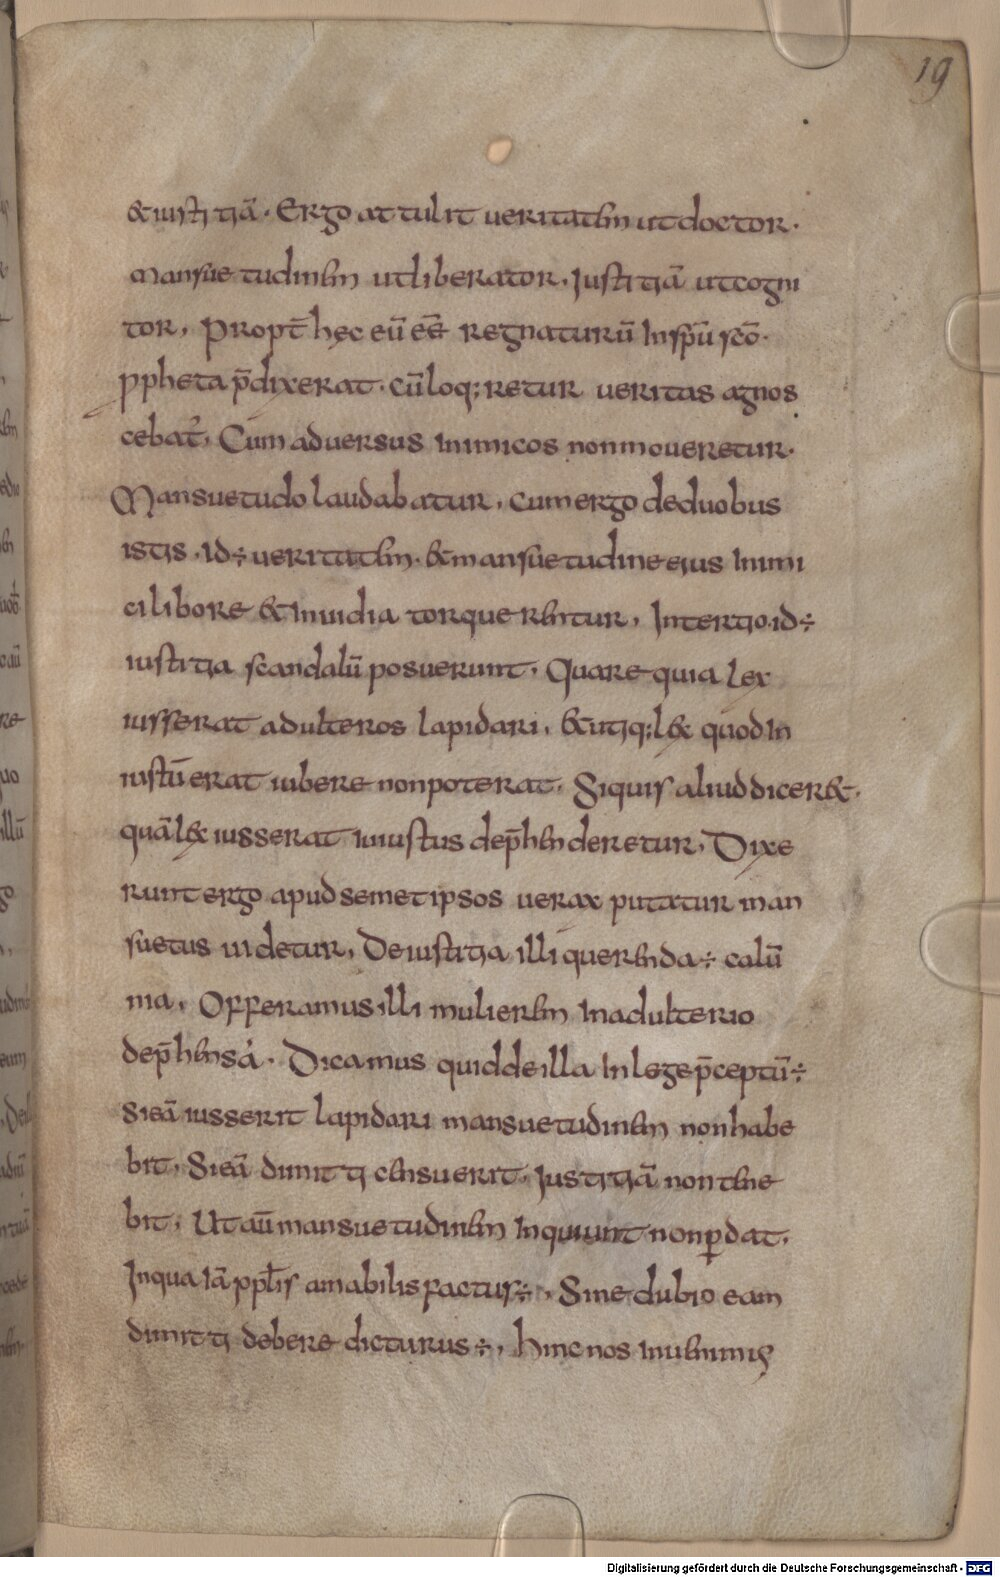 19
& iusti tiā. Ergo at tulit ueritatem ut doctor.
mansue tudinem ut liberator. Iusti tiā ut cogni
tor. Propt̄ hęc eū eē regnaturū In sp̄u scō.
ppheta p̄dixerat. cū loq; retur ueritas agnos
cebat̄. Cum aduersus inimicos non moueretur.
Mansuetudo laudabatur. cum ergo de duobus
istis. id ÷ ueritatem. & mansuetudine eius Inimi
ci libore & Inuidia torquerentur. In tertio. id ÷
iustitia scandalū posuerunt. Quare quia lex
iusserat adulteros lapidari. & utiq; l&x quod In
iustū erat iubere non poterat. Si quis aliud dicer&.
quā l&x iusserat Iniustus dep̄henderetur. Dixe
runt ergo apud semet ipsos uerax putatur man
suetus uidetur. De iustitia illi querenda ÷ calū
nia. Offeramus illi mulierem In adulterio
dep̄hensā. Dicamus quid de illa In lege p̄ceptū ÷
Si eā iusserit lapidari mansuetudinem non habe
bit. Si eā dimitti censuerit. Iustitiā non tene
bit. Ut aū mansuetudinem Inquiunt non pdat.
In qua iā pplis amabilis factus ÷. Sine dubio eam
dimitti debere dicturus ÷. hinc nos Inuenimus
Digitalisierung gefördert durch die Deutsche Forschungsgemeinschaft - DFG